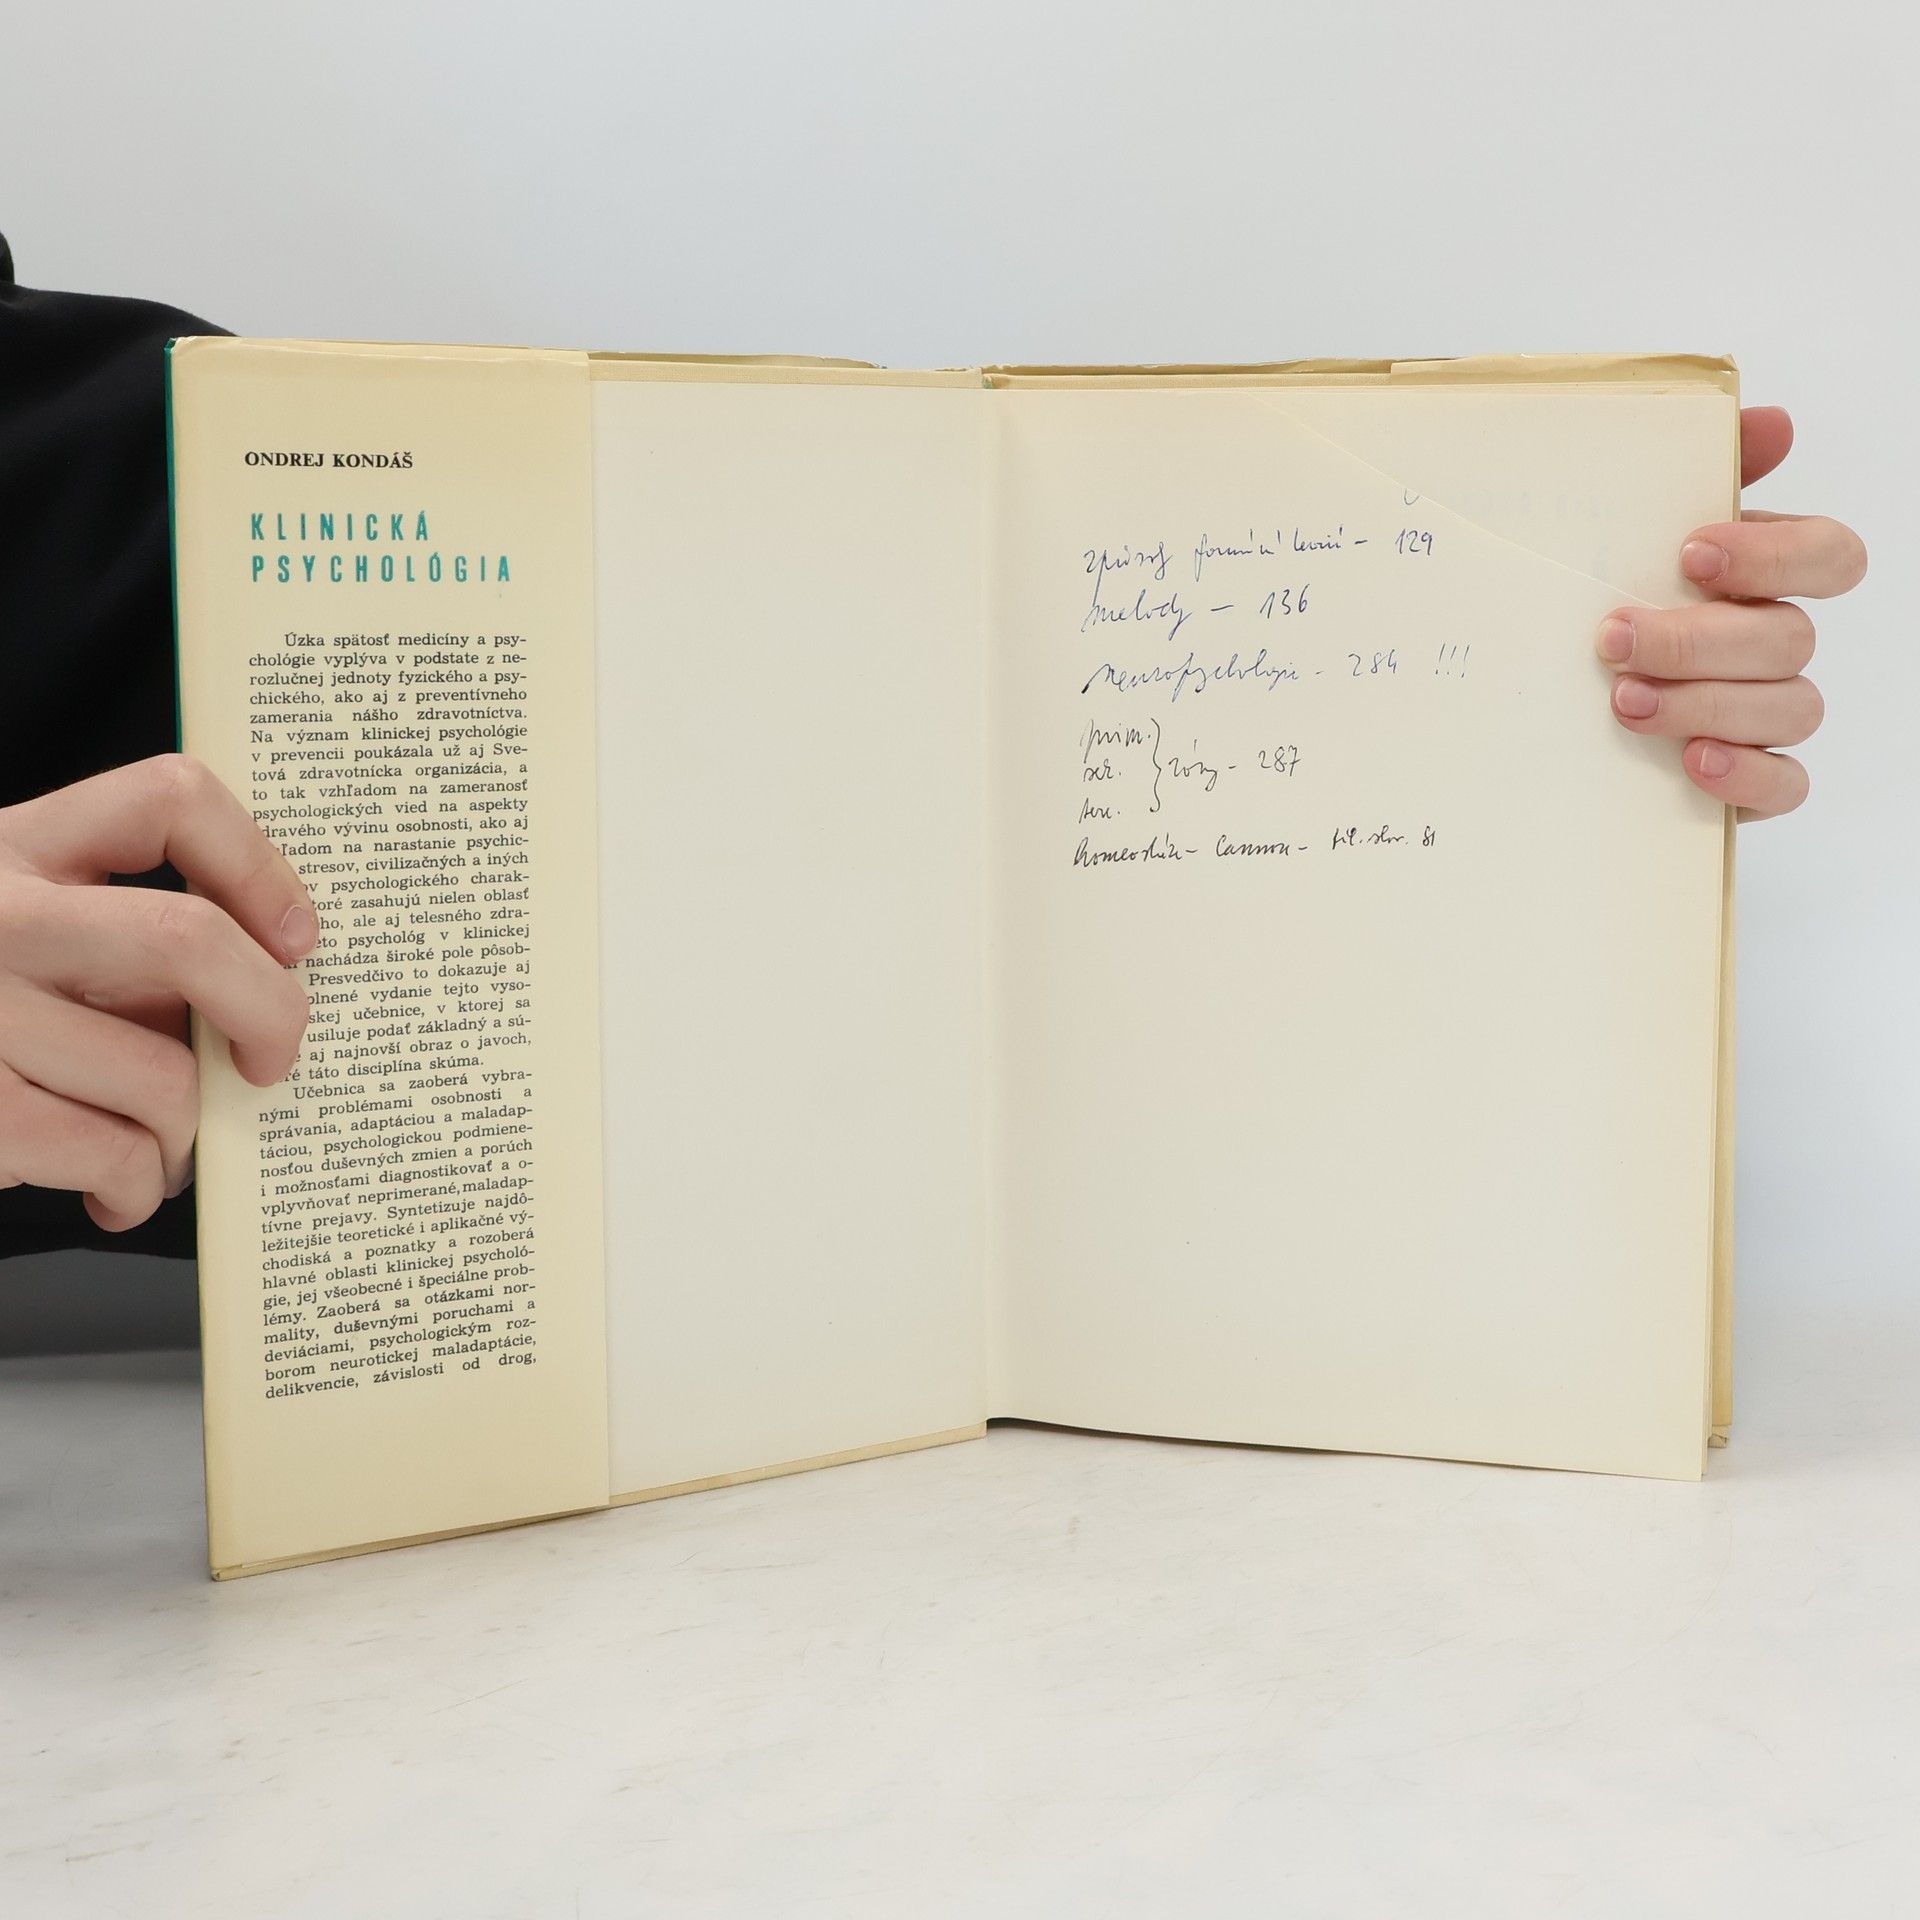 ONDREJ KONDÁŠ
KLINICKÁ
PSYCHOLÓGIA
Úzka spätosť medicíny a psy-
chológie vyplýva v podstate z ne-
rozlučnej jednoty fyzického a psy-
chického, ako aj z preventívneho
zamerania nášho zdravotníctva.
Na význam klinickej psychológie
v prevencii poukázala už aj Sve-
tová zdravotnícka organizácia, a
to tak vzhľadom na zameranosť
psychologických vied na aspekty
dravého vývinu osobnosti, ako aj
ľadom na narastanie psychic-
stresov, civilizačných a iných
ov psychologického charak-
toré zasahujú nielen oblasť
ho, ale aj telesného zdra-
eto psychológ v klinickej
nachádza široké pole pôsob-
Presvedčivo to dokazuje aj
plnené vydanie tejto vyso-
skej učebnice, v ktorej sa
usiluje podať základný a sú-
aj najnovší obraz o javoch,
ré táto disciplína skúma.
Učebnica sa zaoberá vybra-
nými problémami osobnosti a
správania, adaptáciou a maladap-
táciou, psychologickou podmiene-
nosťou duševných zmien a porúch
i možnosťami diagnostikovať a o-
vplyvňovať neprimerané, maladap-
tívne prejavy. Syntetizuje najdô-
ležitejšie teoretické i aplikačné vý-
chodiská a poznatky a rozoberá
hlavné oblasti klinickej psycholó-
gie, jej všeobecné i špeciálne prob-
lémy. Zaoberá sa otázkami nor-
mality, duševnými poruchami a
deviáciami, psychologickým roz-
borom neurotickej maladaptácie,
delikvencie, závislosti od drog,
129
melody – 136
neuropsychologie – 284 !!!
prim.
sek. zóny – 287
terc.
Cannon –